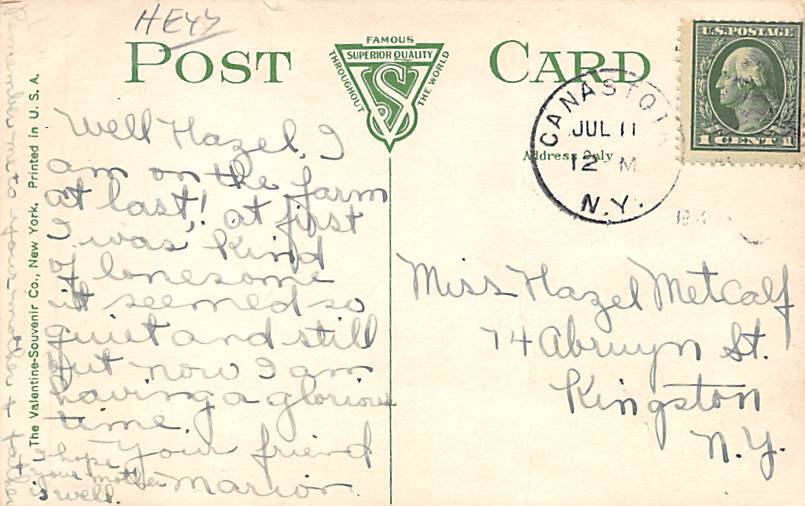 HEYY
POST CARD
FAMOUS
SUPERIOR QUALITY
THROUGHOUT THE WORLD
VS
U.S. POSTAGE
1 CENT 1
CANASTOTA
JUL 11
12 M
N.Y.
Address Only
Well Hazel, I
am on the farm
at last! at first
I was kind
of lonesome
it seemed so
quiet and still
but now I am
having a glorious
time.
Your friend
Marion.
I hope
your mother
is well.
Miss Hazel Metcalf
74 Abruyn St.
Kingston
N.Y.
The Valentine-Souvenir Co., New York. Printed in U. S. A.
Remember me to your mother + father